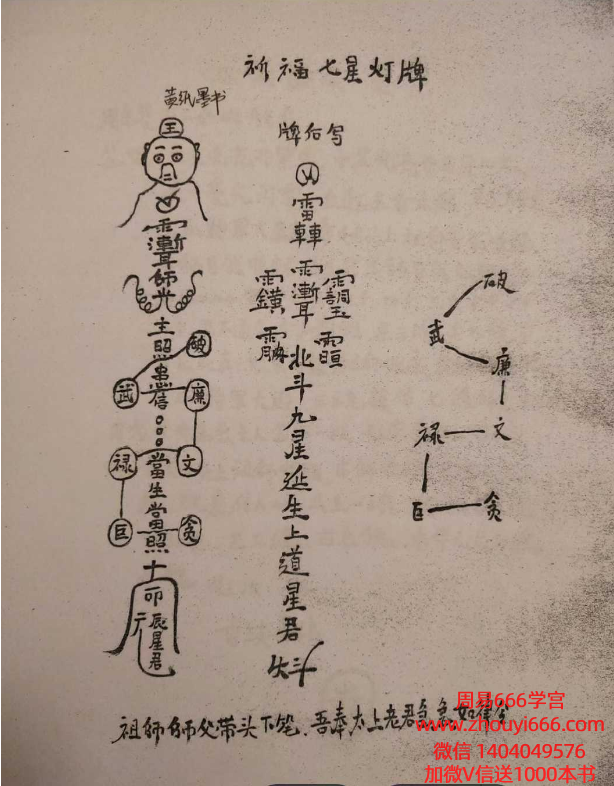 祈福七星灯牌
黄纸墨书
王
牌后写
師
主照
破
武
廉
禄
文
當生當照
巨
贪
十
元辰星君
雷
北斗九星延生上道星君
破
武
廉
禄 文
巨 贪
祖师师父带头下笔、吾奉太上老君急急如律令
周易666学宫
www.zhouyi666.com
微信 1404049576
加微V信送1000本书